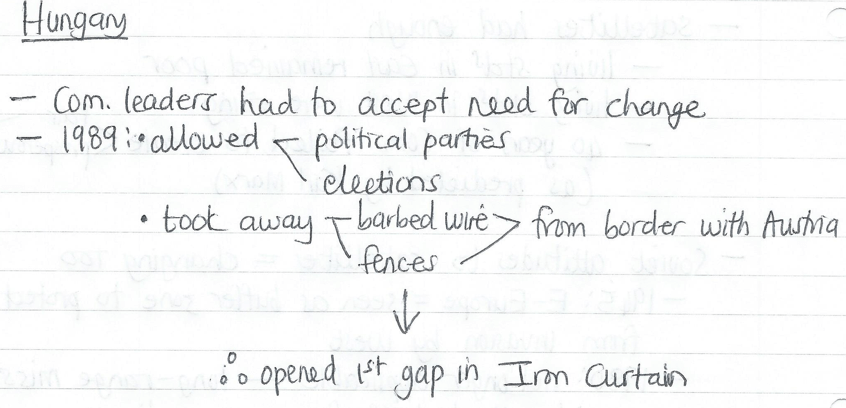 Hungary
— Com. leaders had to accept need for change
— 1989: • allowed — political parties
elections
• took away — barbed wire > from border with Austria
fences
↓
∴ opened 1st gap in Iron Curtain